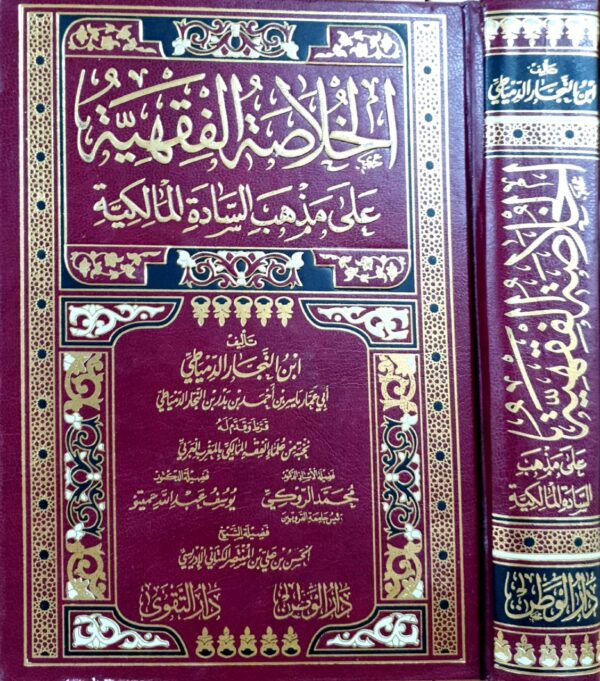 الخُلاصَةُ الفِقهِيَّة
عَلَى مَذْهَبِ السَّادَةِ المَالِكِيَّة
تأليف
ابْنِ النَّجَّارِ الدِّميَاطِيِّ
أبي عمار ياسر بن أحمد بن بدر بن النجار الدمياطي
قرظه وقدم له
نخبة من علماء الفقه المالكي بالمغرب العربي
فضيلة الأستاذ الدكتور
محمد الروكي
رئيس جامعة القرويين
فضيلة الدكتور
يوسف عبد الله حميتو
فضيلة الشيخ
الحسن بن علي بن المنتصر الكتاني الإدريسي
دار الوطن
دار التقوى
تأليف
ابن النجار الدمياطي
الخلاصة الفقهية
على مذهب
السادة المالكية
دار الوطن